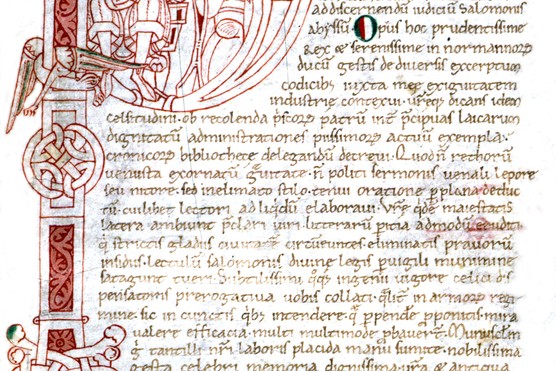 addiscernendū iudiciū salomonis
abyssū. Opus hoc prudentissime
rex & serenissime in normannoꝝ
ducū gestis de diversis excerptum
codicibꝰ iuxta meę exiguitatem
industrię contexui. urę̄q; dicans idem
celsitudini. ob recolenda p'scoꝝ patrū int̄ p̄cipuas laicarum
dignitatū administrationes piissimoꝝ actuū exempla.
cronicoꝝ bibliothecę delegandū decrevi. Quod n̄ rethorū
venusta exornatū g̃uitate. n̄ politi sermonis venali lepore
seu nitore. sed inelimato stilo. tenui oratione ꝑ plana deduc
tū cuilibet lectori ad liqdū elaboravi. Vrę̄ qoq; maiestatis
latera ambiunt p̄clari uiri litterarum pitia admodū eruditi.
q strictis gladiis ciuitatē circūeuntes eliminatis prauorū
insidiis. lectulū salomonis diuinę legis ꝑuigili munimine
satagunt tueri. Subtilissimi qq; ingenii uigore cęlici dis
pensatoris prerogatiua uobis collati. qlit̄ in armoꝝ regi
mine. sic in cunctis qb; intendere. q̄ ꝑpendē pponitis. mira
ualere efficacia. multi multimode phauer̄t. Munusclm
g̃ tantilli nr̄i laboris placida manu sumite. nobilissima
gesta celebri memoria dignissima ur̄a & antiqua